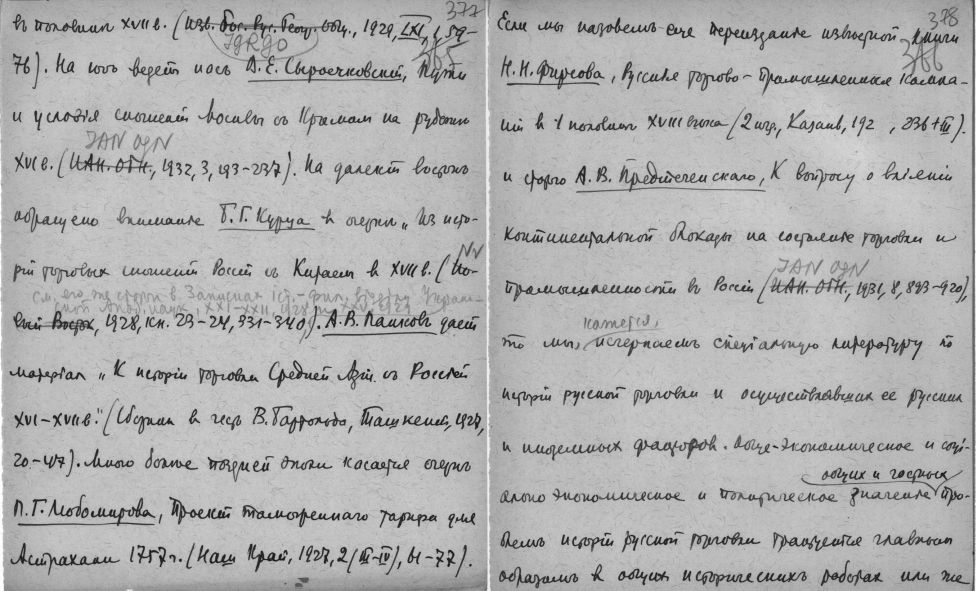 377
въ половинѣ XVII в. (Изв. Гос. Рус. Геогр. Общ., 1929, LXI, 1, 59-
IGRGO
365
76). На югъ ведетъ насъ В.Е. Сыроечковскій, Пути
и условія сношеній Москвы съ Крымомъ на рубежѣ
IAN OGN
XVI в. (ИАН. ОГН., 1932, 3, 193-237). На далекій востокъ
обращено вниманіе Б.Г. Курца въ очеркѣ „Из исто-
NV
ріи торговых сношеній Россіи съ Китаемъ в XVII в. (Но-
см. его же статью в Записках Іст.-Філ. відділу Украін-
вый Востокъ, 1928, кн. 23-24, 331-340). А.В. Панковъ даетъ
матеріал „К исторіи торговли Средней Азіи съ Россіей
XVI-XVII в.“ (Сборник в честь В. Бартольда, Ташкент, 1927,
20-47). Много болѣе поздней эпохи касается очеркъ
П.Г. Любомирова, Проект таможеннаго тарифа для
Астрахани 1757 г. (Наш Край, 1927, 2 (III-IV), 61-77).
378
Если мы назовемъ еще переизданіе извѣстной книги
366
Н.Н. Фирсова, Русскія торгово-промышленныя компа-
ніи в 1 половинѣ XVIII вѣка (2 изд., Казань, 192 , 236+III).
и статью А.В. Предтеченскаго, К вопросу о вліяніи
континентальной блокады на состояніе торговли и
IAN OGN
промышленности въ Россіи (ИАН. ОГН., 1931, 8, 893-920),
кажется,
то мы, исчерпаемъ спеціальную литературу по
исторіи русской торговли и осуществлявших ее русских
и иноземных факторов. Обще-экономическое и соці-
общих и частных
ально экономическое и политическое значеніе про-
блемъ исторіи русской торговли трактуется главным
образомъ в общих историческихъ работах или же